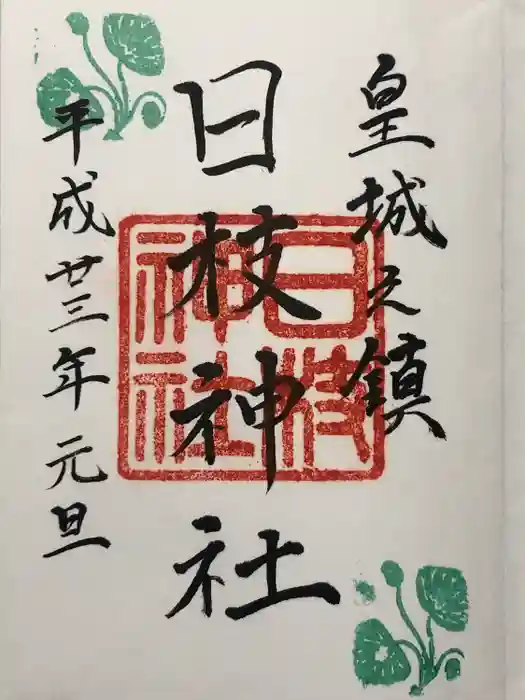 皇城之鎮
日枝神社
日枝神社
平成廿三年元旦